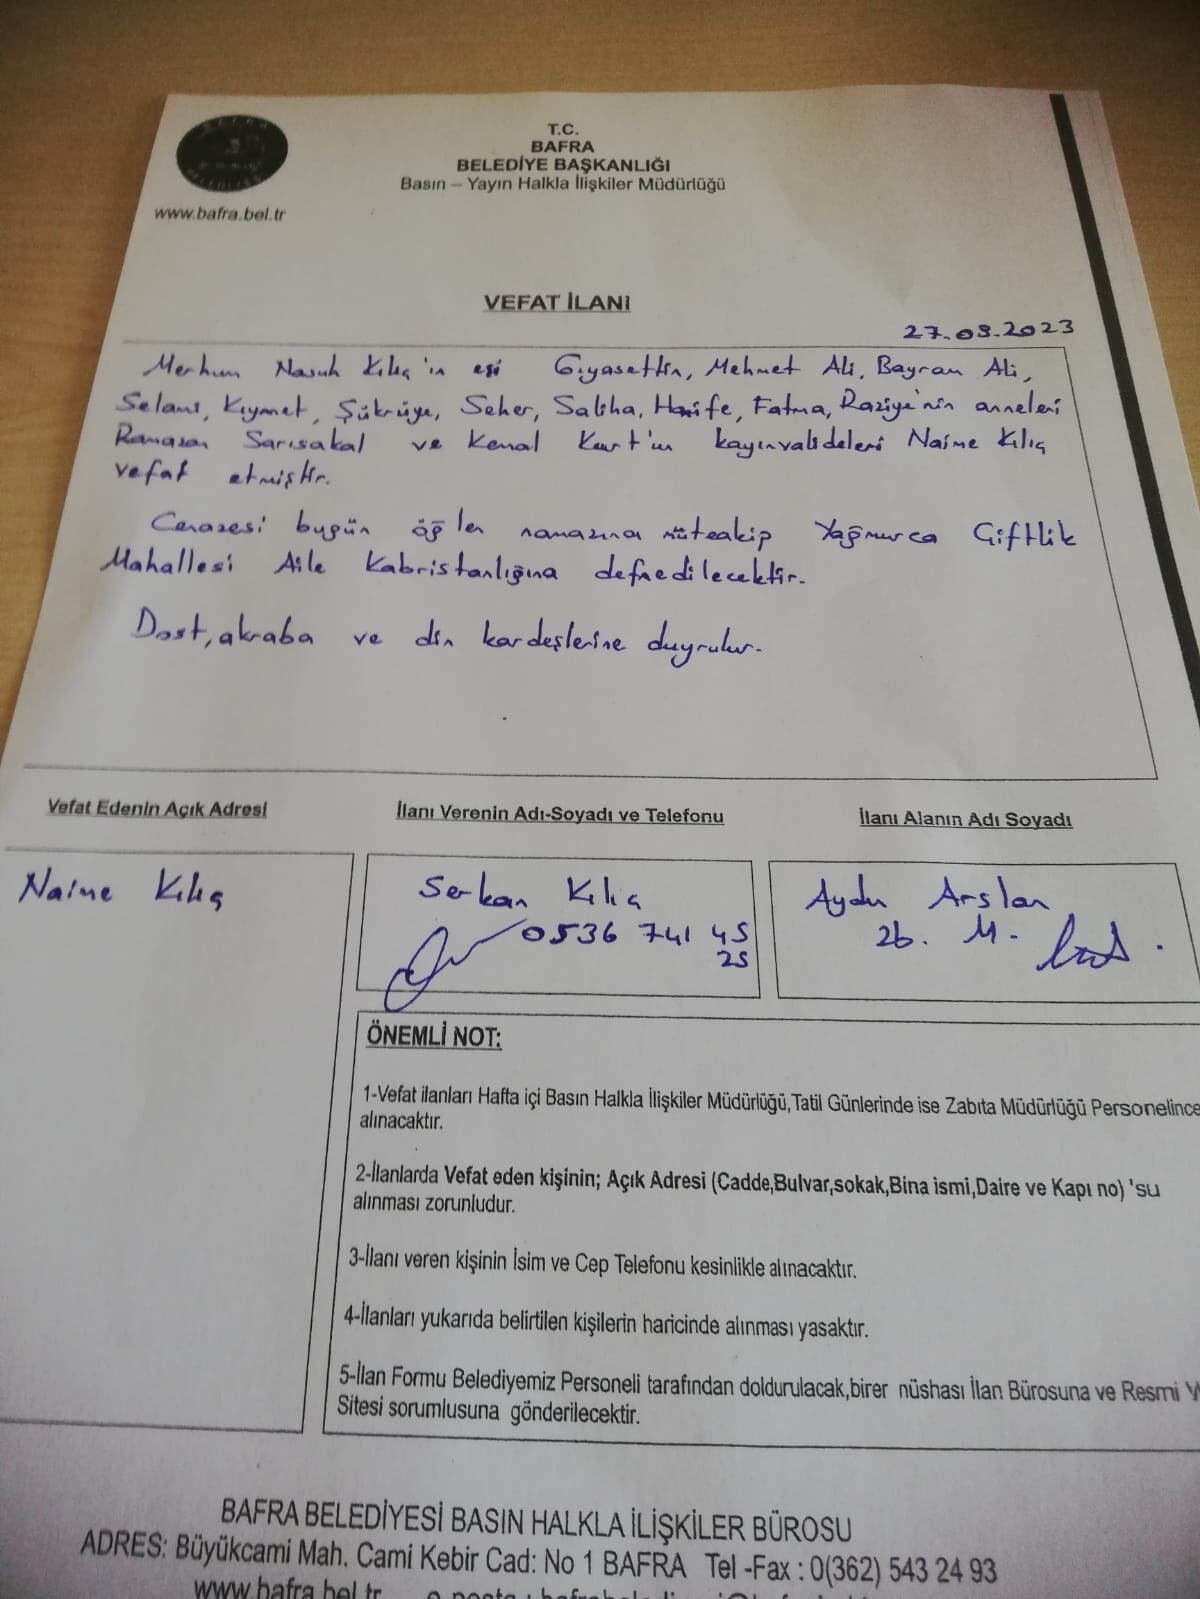 BAFRA
BELEDİYESİ
www.bafra.bel.tr
T.C.
BAFRA
BELEDİYE BAŞKANLIĞI
Basın – Yayın Halkla İlişkiler Müdürlüğü
VEFAT İLANI
27.08.2023
Merhum Nasuh Kılıç'ın eşi Gıyasettin, Mehmet Ali, Bayram Ali,
Selami, Kıymet, Şükrüye, Seher, Saliha, Hanife, Fatma, Raziye'nin anneleri
Ramazan Sarısakal ve Kemal Kurt'un kayınvalideleri Naime Kılıç
vefat etmiştir.
Cenazesi bugün öğlen namazına müteakip Yağmurca Çiftlik
Mahallesi Aile Kabristanlığına defnedilecektir.
Dost, akraba ve din kardeşlerine duyrulur.
Vefat Edenin Açık Adresi
İlanı Verenin Adı-Soyadı ve Telefonu
İlanı Alanın Adı Soyadı
Naime Kılıç
Serkan Kılıç
0536 741 45
25
Aydın Arslan
Zb. M.
ÖNEMLİ NOT:
1-Vefat ilanları Hafta içi Basın Halkla İlişkiler Müdürlüğü,Tatil Günlerinde ise Zabıta Müdürlüğü Personelince
alınacaktır.
2-İlanlarda Vefat eden kişinin; Açık Adresi (Cadde,Bulvar,sokak,Bina ismi,Daire ve Kapı no) 'su
alınması zorunludur.
3-İlanı veren kişinin İsim ve Cep Telefonu kesinlikle alınacaktır.
4-İlanları yukarıda belirtilen kişilerin haricinde alınması yasaktır.
5-İlan Formu Belediyemiz Personeli tarafından doldurulacak,birer nüshası İlan Bürosuna ve Resmi W
Sitesi sorumlusuna gönderilecektir.
BAFRA BELEDİYESİ BASIN HALKLA İLİŞKİLER BÜROSU
ADRES: Büyükcami Mah. Cami Kebir Cad: No 1 BAFRA Tel -Fax : 0(362) 543 24 93
www.bafra.bel.tr